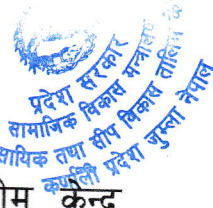 प्रदेश सरकार
सामाजिक विकास मन्त्रालय
सायिक तथा सीप विकास तालिम
कर्णाली प्रदेश जुम्ला नेपाल
केन्द्र